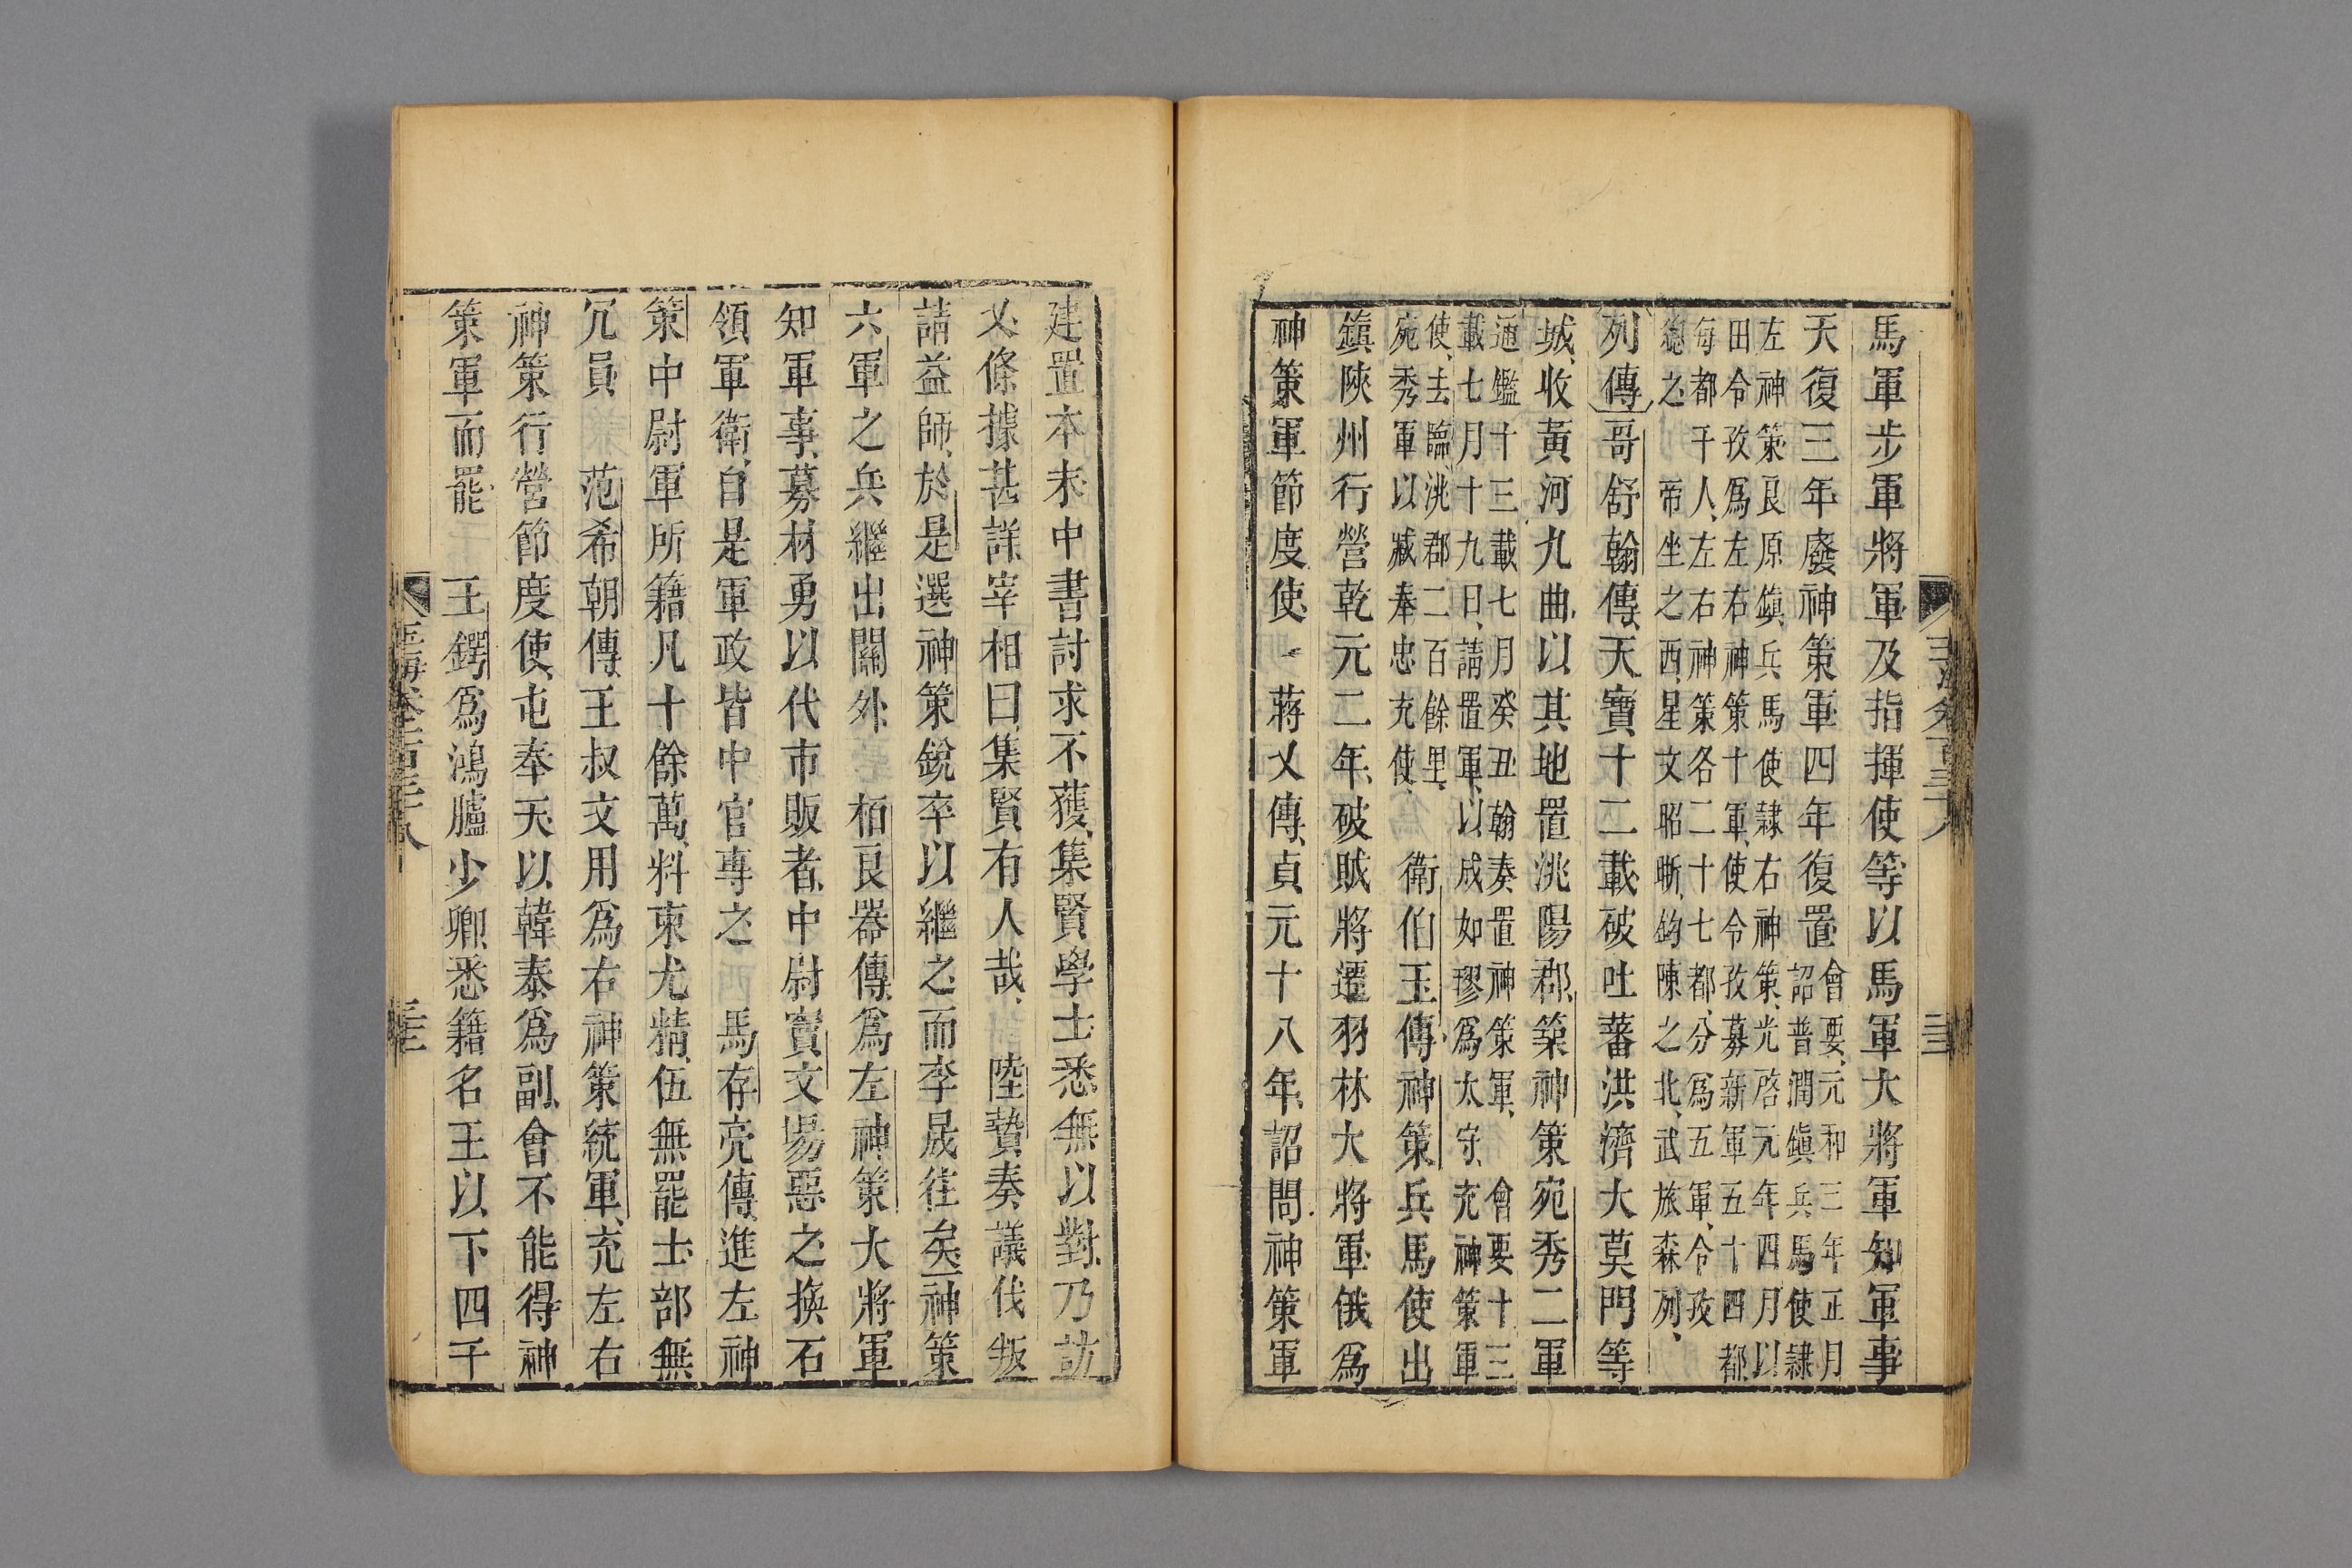 馬軍步軍將軍及指揮使等以馬軍大將軍知軍事
天復三年廢神策軍四年復置會要元和三年正月
詔普潤鎭兵馬使隷
左神策良原鎮兵馬使隷右神策光啓元年四月以
田令孜爲左右神策十軍使令孜募新軍五十四都
每都千人左右神策各二十七都分爲五軍令孜
總之帝坐之西星文昭晣鈞陳之北武旅森列
列傳哥舒翰傳天寶十二載破吐蕃洪濟大莫門等
城收黃河九曲以其地置洮陽郡築神策宛秀二軍
通鑑十三載七月癸丑翰奏置神策軍會要十三
載七月十九日請置軍以成如璆爲太守充神策軍
使去臨洮郡二百餘里
宛秀軍以臧奉忠充使
衛伯玉傳神策兵馬使出
鎮陝州行營乾元二年破賊將遷羽林大將軍俄爲
神策軍節度使蔣乂傳貞元十八年詔問神策軍
玉海卷一百三十八
建置本末中書討求不獲集賢學士悉無以對乃訪
乂條據甚詳宰相曰集賢有人哉陸贄奏議伐叛
請益師於是選神策銳卒以繼之而李晟往矣神策
六軍之兵繼出關外栢良器傳爲左神策大將軍
知軍事募材勇以代市販者中尉竇文場惡之換石
領軍衛自是軍政皆中官專之馬存亮傳進左神
策中尉軍所籍凡十餘萬料柬尤精伍無罷士部無
冗員范希朝傳王叔文用爲右神策統軍充左右
神策行營節度使屯奉天以韓泰爲副會不能得神
策軍而罷王鍔爲鴻臚少卿悉籍名王以下四千
玉海卷一百三十八